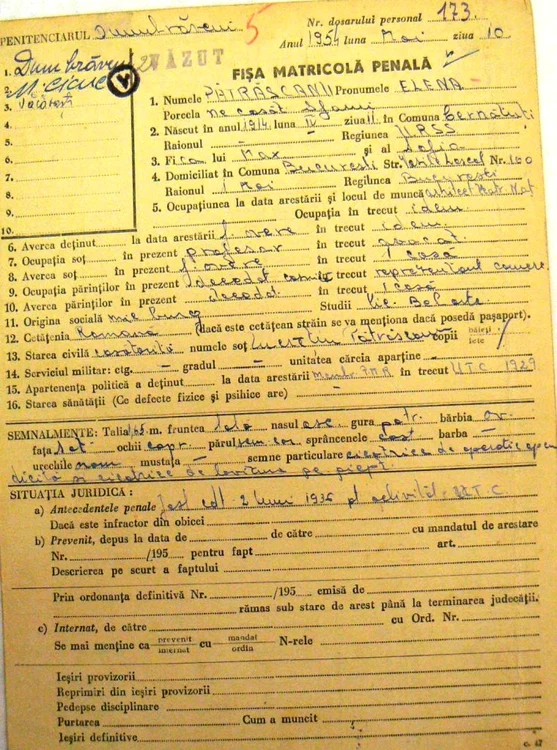 PENITENCIARUL Dumbrăveni 5 Nr. dosarului personal 173
Anul 1954 luna Mai ziua 10
VĂZUT
FIȘA MATRICOLĂ PENALĂ
1. Dumbrăveni
2. M. Ciuc
3. Văcărești
4.
5.
6.
7.
8.
9.
10.
1. Numele PĂTRĂȘCANU Pronumele ELENA
Porecla
2. Născut în anul 1914 luna IV ziua 11 în Comuna Cernăuți
Raionul – Regiunea URSS
3. Fi ca lui Max și al Sofia
4. Domiciliat în Comuna București Str. Nr. 100
Raionul 1 Mai Regiunea București
5. Ocupațiunea la data arestării și locul de muncă arhitect
Ocupația în trecut idem
6. Averea deținut la data arestării n. avere în trecut idem
7. Ocupația soț în prezent profesor în trecut avocat
8. Averea soț în prezent n. avere în trecut 1 casă
9. Ocupația părinților în prezent decedat în trecut reprezentant comerc
10. Averea părinților în prezent decedat în trecut 1 casă
11. Origina socială mic burg Studii Lic. Bele arte
12. Cetățenia Română (dacă este cetățean străin se va menționa dacă posedă pașaport).
13. Starea civilă căsătorită numele soț Lucrețiu Pătrășcanu copii băieți fete
14. Serviciul militar: ctg. – gradul – unitatea cărcia aparține –
15. Apartenența politică a deținut la data arestării Membr. PMR în trecut UTC 1929
16. Starea sănătății (Ce defecte fizice și psihice are) –
SEMNALMENTE: Talia 1,62 m. fruntea lată nasul asc. gura potr. bărbia ov.
fața ochii capr. părul sprâncenele cast barba –
urechile norm mustața – semne particulare cicatrice de operație apen
dicită și cicatrice de pe piept
SITUAȚIA JURIDICĂ :
a) Antecedentele penale Fost cdt 2 luni 1936 pt activitate UTC
Dacă este infractor din obicei
b) Prevenit, depus la data de de către cu mandatul de arestare
Nr. /195 pentru fapt art.
Descrierea pe scurt a faptului
Prin ordonanta definitivă Nr. /195 emisă de
rămas sub stare de arest până la terminarea judecății.
c) Internat, de către cu Ord. Nr.
Se mai menține ca prevenit internat cu mandat ordin N-rele
Ieșiri provizorii
Reprimiri din ieșiri provizorii
Pedepse disciplinare
Purtarea Cum a muncit
Ieșiri definitive
c. 47